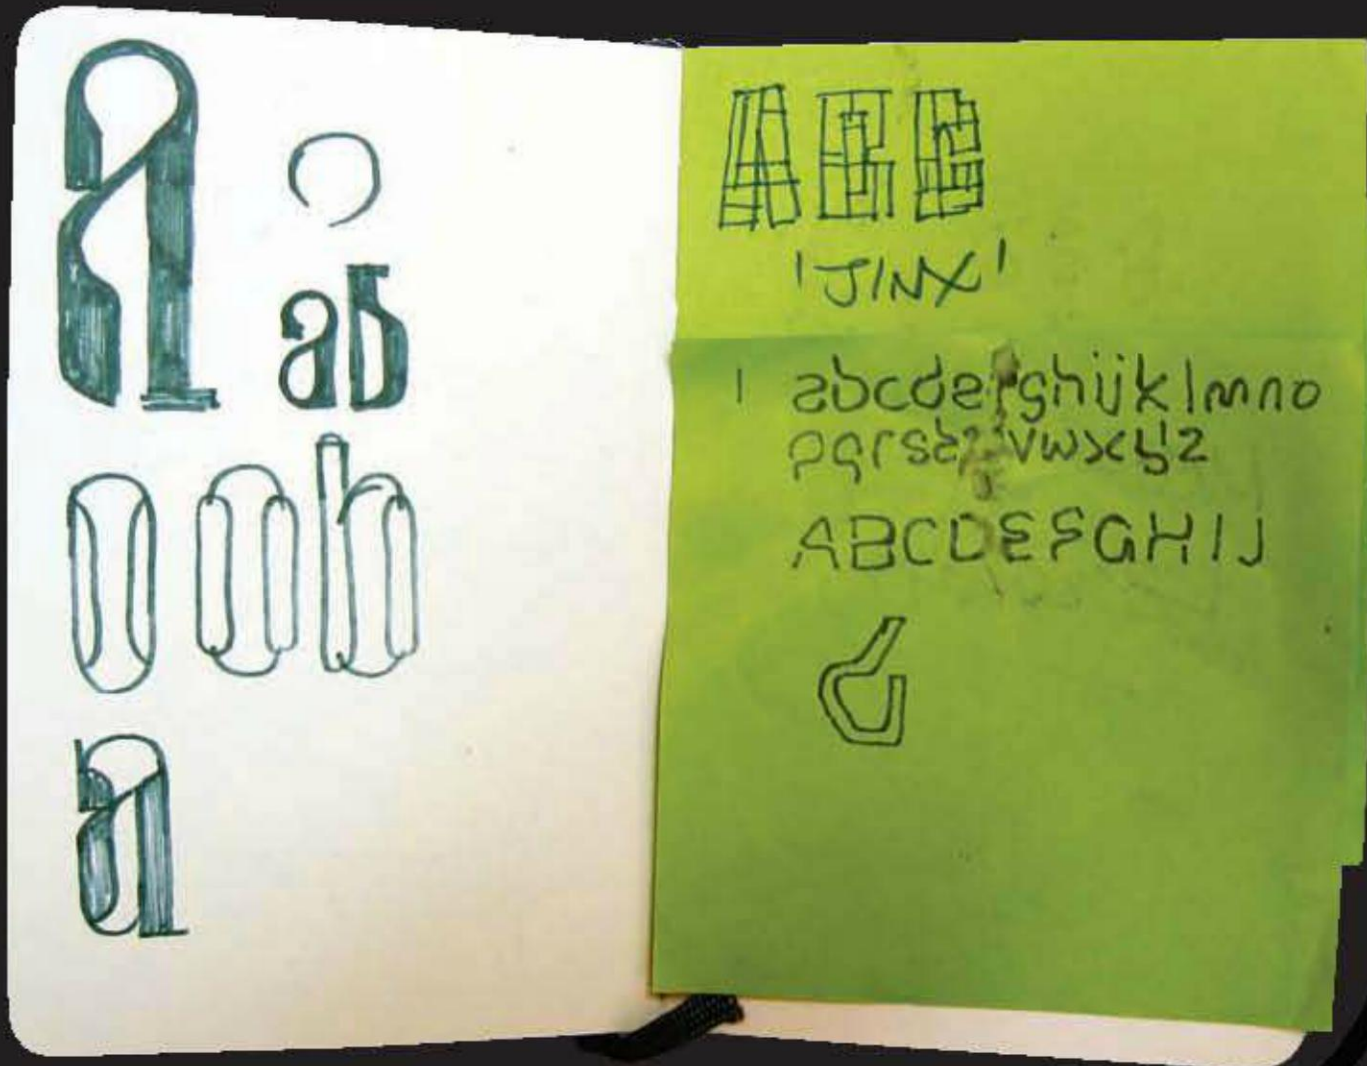 a
ab
o o h
a
A B C
'JINX'
1 abcdefghijklmno
pqrst vwxyz
ABCDEFGHIJ